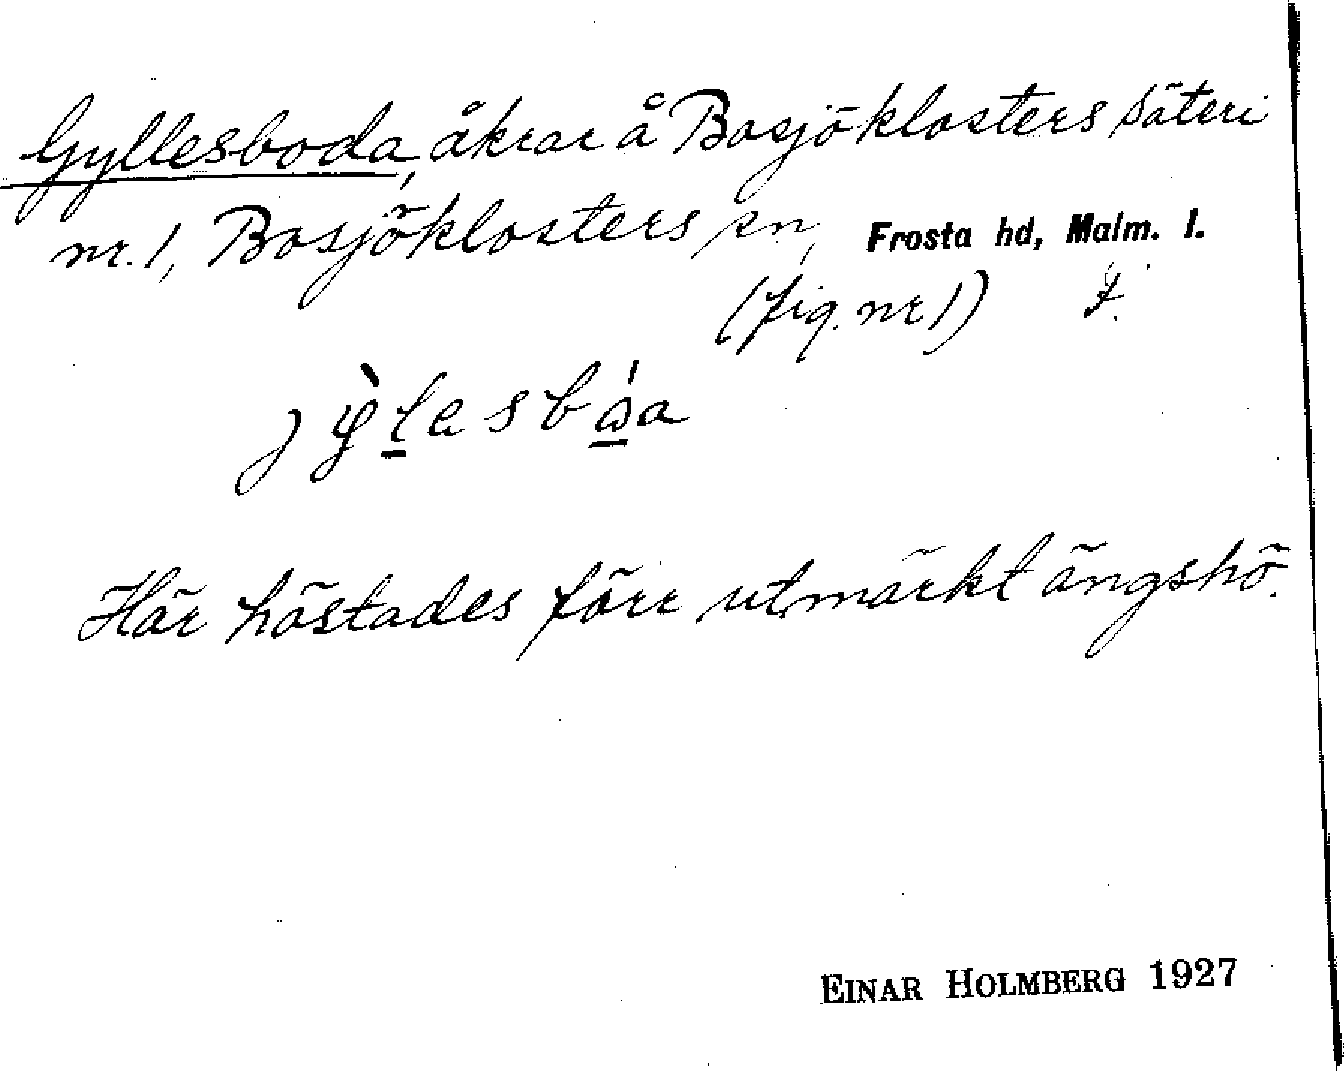 Gyllesboda, åkrar å Bosjöklosters säteri
nr. 1, Bosjöklosters sn, Frosta hd, Malm. l.
(fig. nr 1) F.
Här höstades förr utmärkt ängshö.
EINAR HOLMBERG 1927